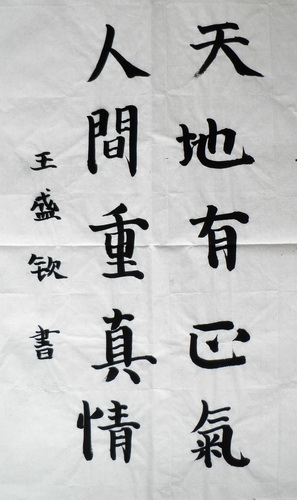 天地有正氣
人間重真情
王盛欽書